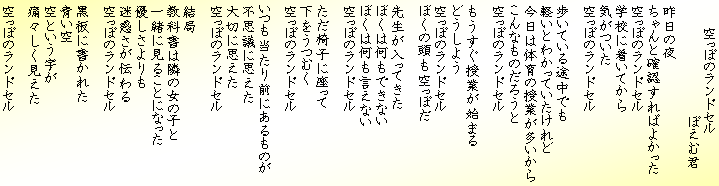 空っぽのランドセル
ぽえむ君
昨日の夜
ちゃんと確認すればよかった
空っぽのランドセル
学校に着いてから
気がついた
空っぽのランドセル
歩いている途中でも
軽いとわかっていたけれど
今日は体育の授業が多いから
こんなものだろうと
空っぽのランドセル
もうすぐ授業が始まる
どうしよう
空っぽのランドセル
ぼくの頭も空っぽだ
先生が入ってきた
ぼくは何もできない
ぼくは何も言えない
空っぽのランドセル
ただ椅子に座って
下をうつむく
空っぽのランドセル
いつも当たり前にあるものが
不思議に思えた
大切に思えた
空っぽのランドセル
結局
教科書は隣の女の子と
一緒に見ることになった
優しさよりも
迷惑さが伝わる
空っぽのランドセル
黒板に書かれた
青い空
空という字が
痛々しく見えた
空っぽのランドセル